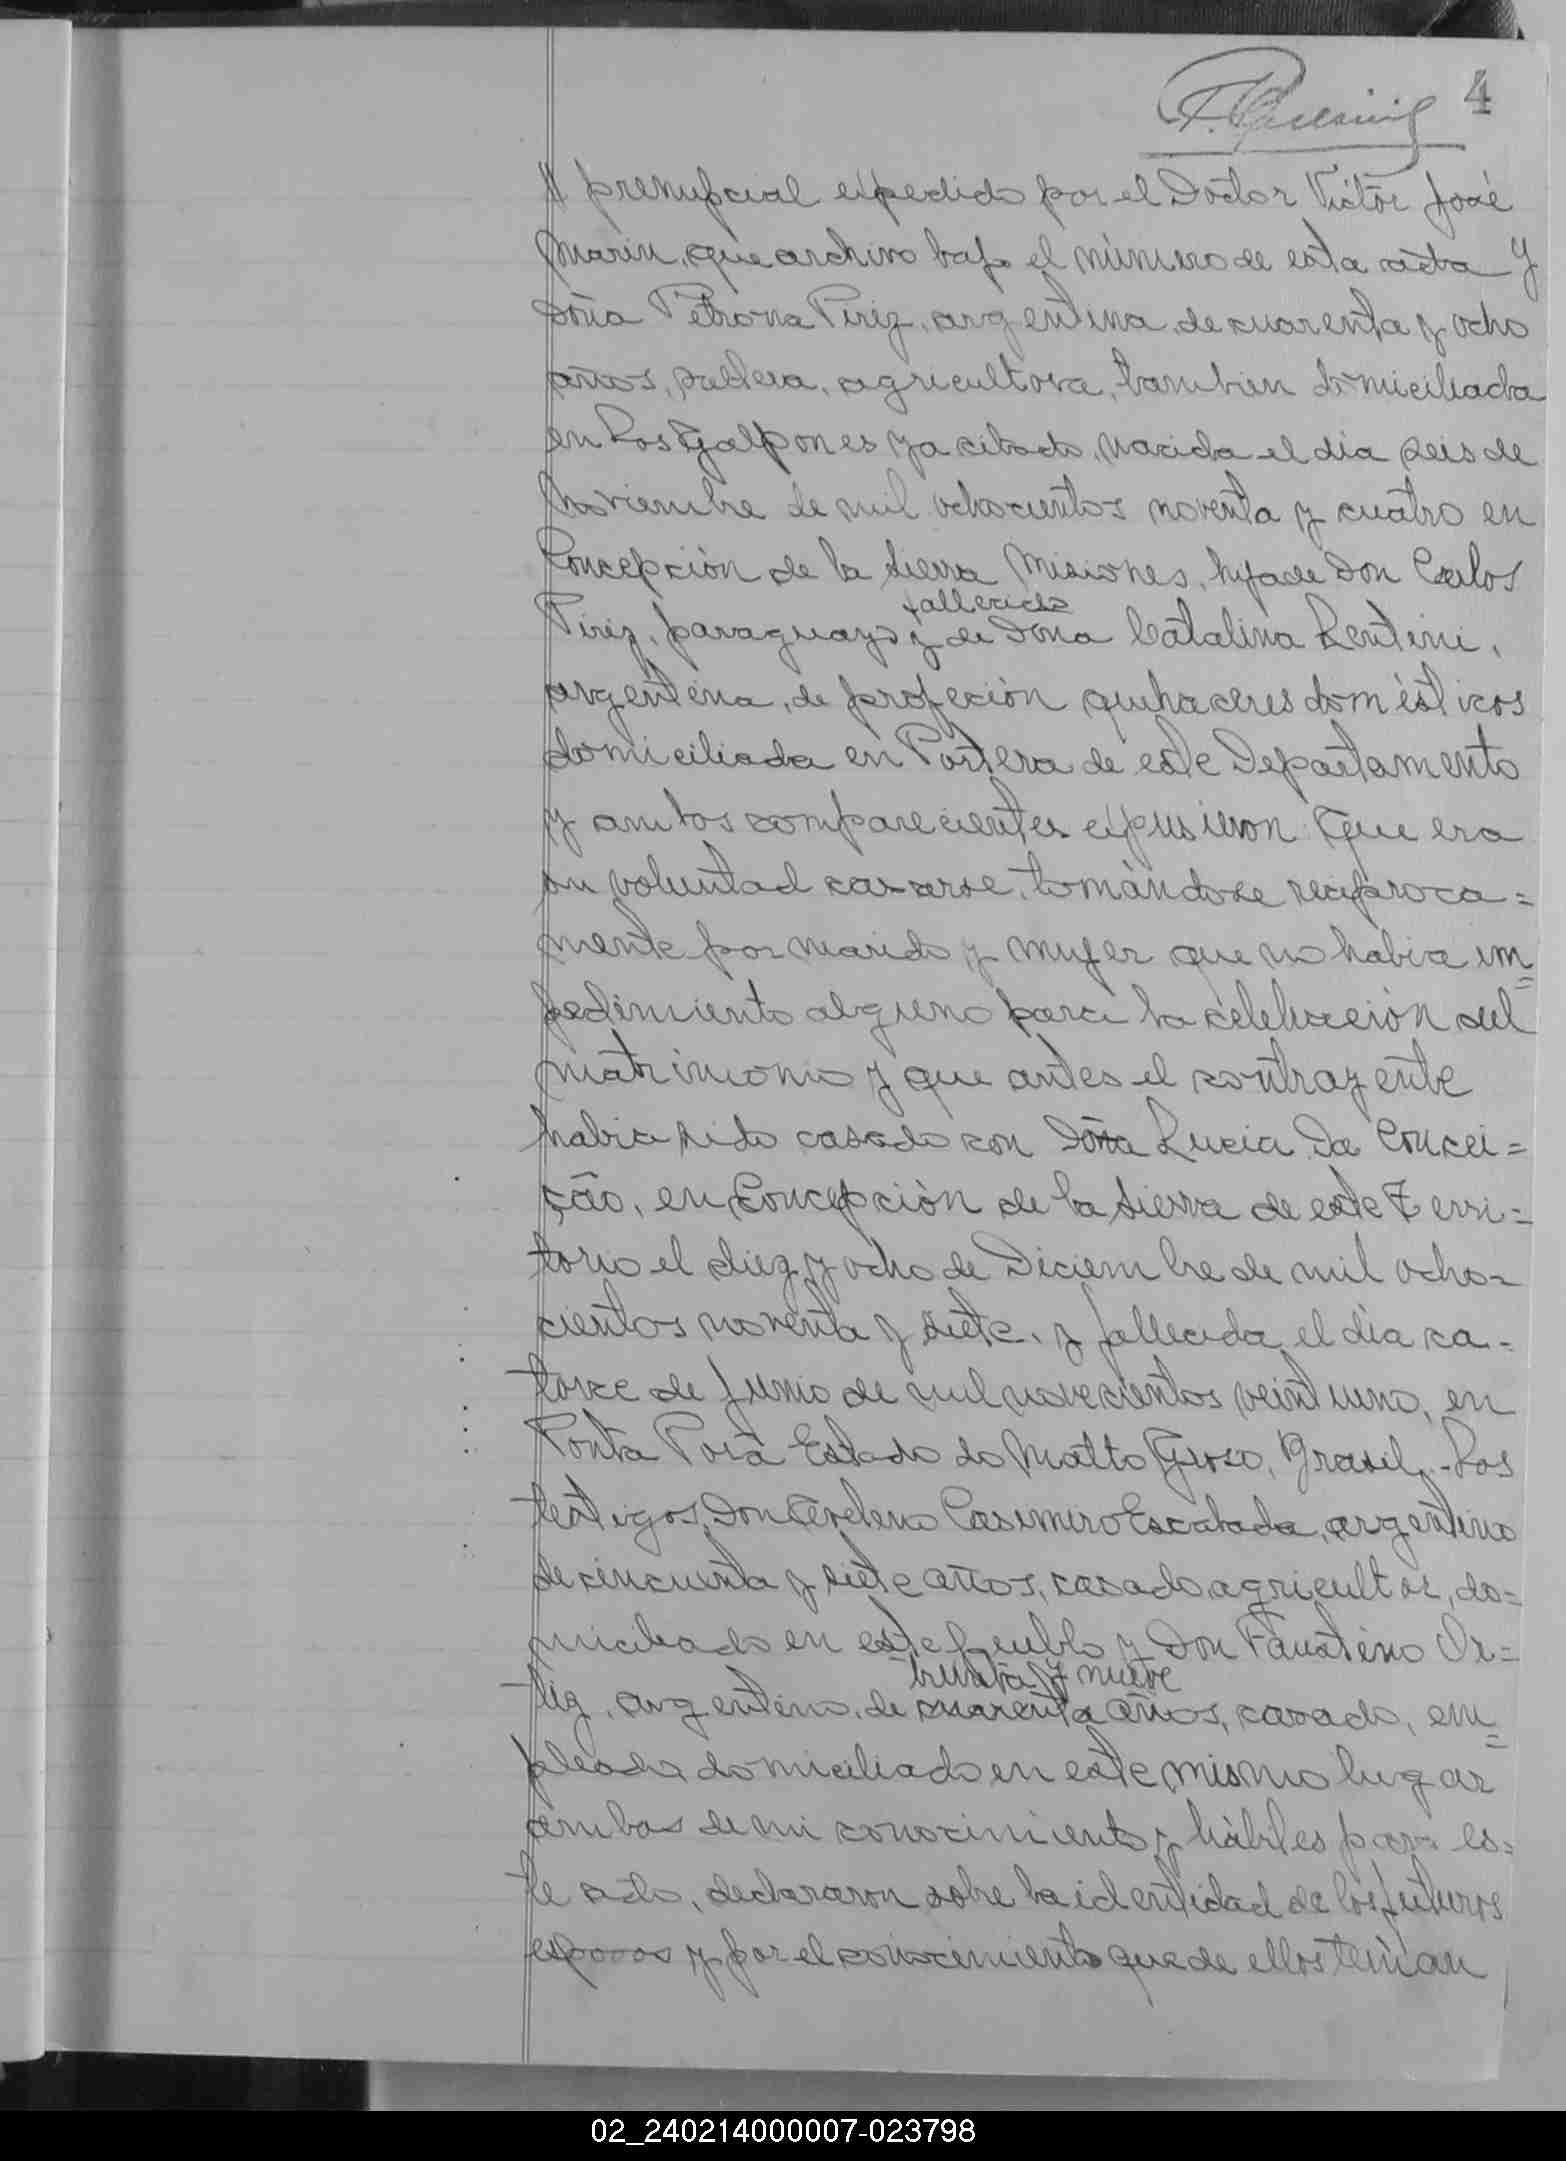 4
// prenupcial expedido por el Doctor Victor José
Marin, que archivo bajo el número de esta acta y
Doña Petrona Pirez, argentina, de cuarenta y ocho
años, soltera, agricultora, tambien domiciliada
en Los Galpones ya citado, nacida el dia seis de
Noviembre de mil ochocientos noventa y cuatro en
Concepción de la Sierra Misiones, hija de Don Carlos
fallecido
Pirez, paraguayo y de Doña Catalina Lentini,
argentina, de profeción quehaceres domésticos
domiciliada en Portera de este Departamento
y ambos comparecientes expusieron: Que era
su voluntad casarse, tomándose reciproca=
mente por marido y mujer que no habia im=
pedimiento alguno para la celebración del
matrimonio y que antes el contrayente
habia sido casado con Doña Lucia Da Concei=
ção, en Concepción de la Sierra de este Terri=
torio el diez y ocho de Diciembre de mil ocho=
cientos noventa y siete, y fallecida el dia ca=
torce de Junio de mil novecientos veintiuno, en
Ponta Porã Estado do Matto Groso, Brasil.- Los
testigos, Don Casimiro Escalada, argentino
de cincuenta y siete años, casado, agricultor, do=
miciliado en este pueblo y Don Faustino Or=
treinta y nueve
tiz, argentino, de cuarenta años, casado, em=
pleado, domiciliado en este mismo lugar
ambos de mi conocimiento y hábiles para es=
te acto, declararon sobre la identidad de los futuros
esposos y por el conocimiento que de ellos tenian
02_240214000007-023798